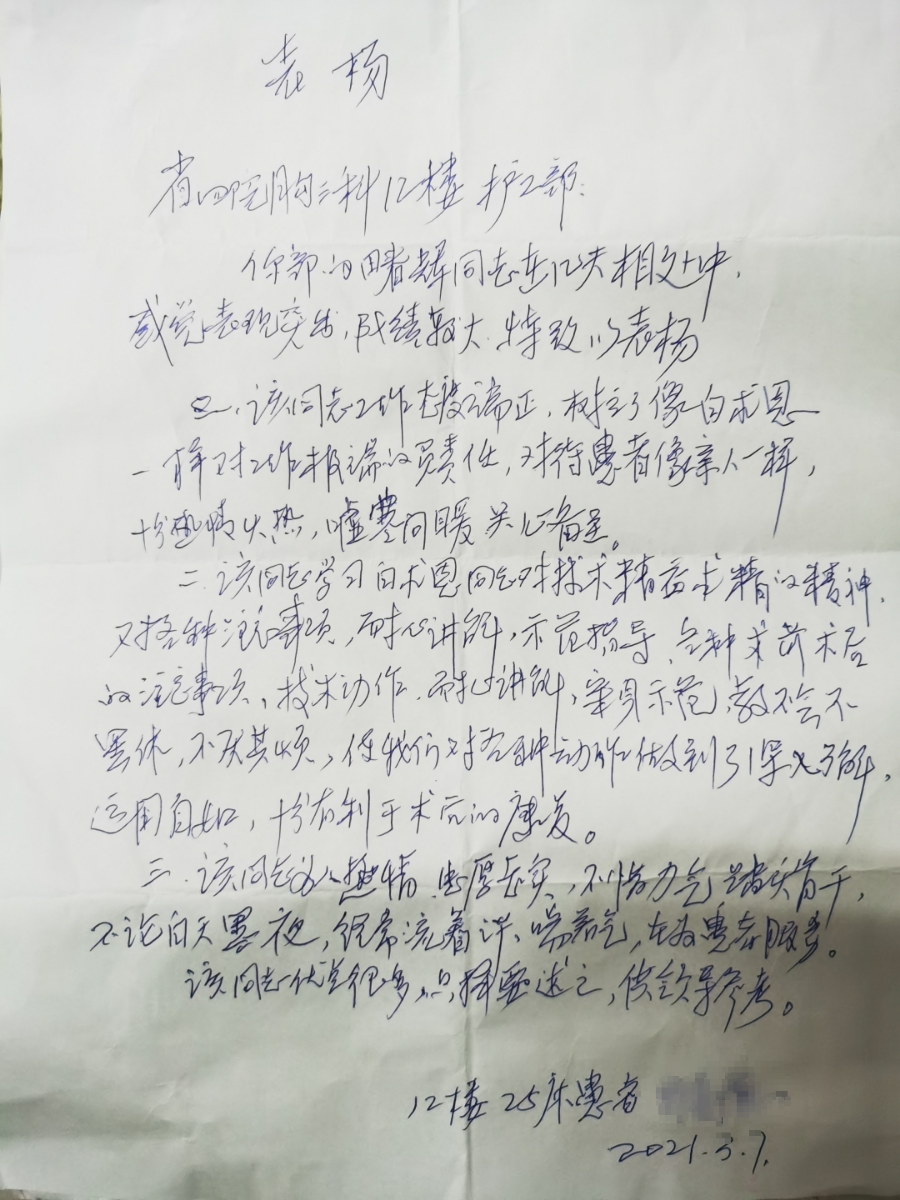 表杨
省四院胸三科12楼护工部:
你部的田春辉同志在12天相处中,
感觉表现突出,成绩较大.特致以表杨
一、该同志工作态度端正,树立了像白求恩
一样对工作极端的负责任,对待患者像亲人一样,
十分热情火热,嘘寒问暖关心备至。
二.该同志学习白求恩同志对技术精益求精的精神,
对各种注意事项、耐心讲解,示范指导、各种术前术后
的注意事项、技术动作.耐心讲解,亲身示范,教不会不
罢休,不厌其烦,使我们对各种动作做到了深入了解,
运用自如,十分有利于术后的康复。
三.该同志为人热情.忠厚老实,不惜力气踏实肯干,
不论白天黑夜,经常流着汗、喘着气,在为患者服务。
该同志优点很多,只择要述之,供领导参考。
12楼25床患者
2021.5.7.